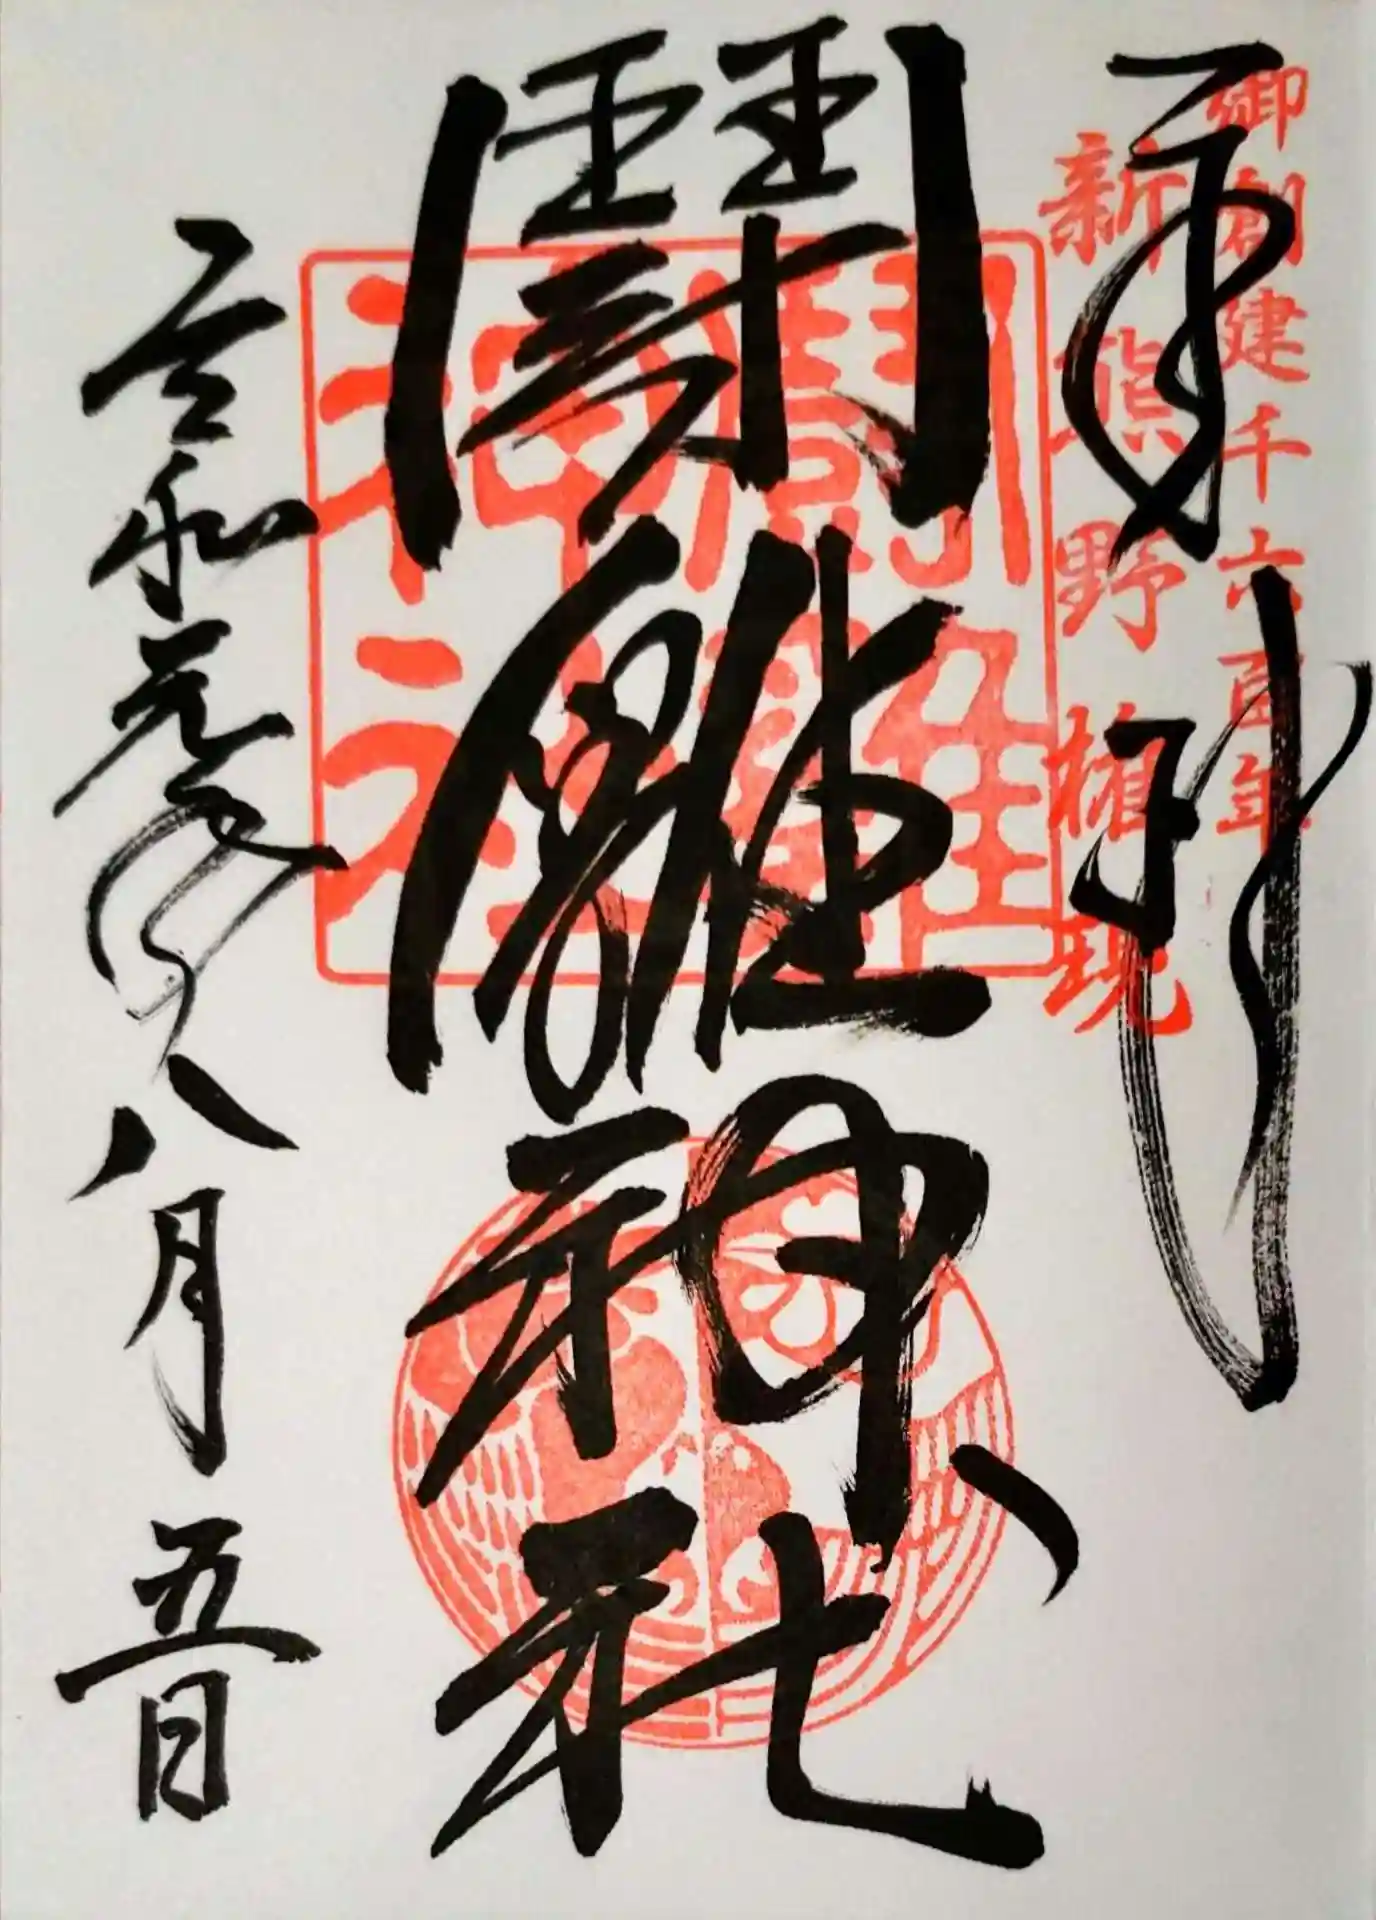 御創建千六百年
新熊野権現
奉拝
闘雞神社
闘雞神社
令和元年八月五日